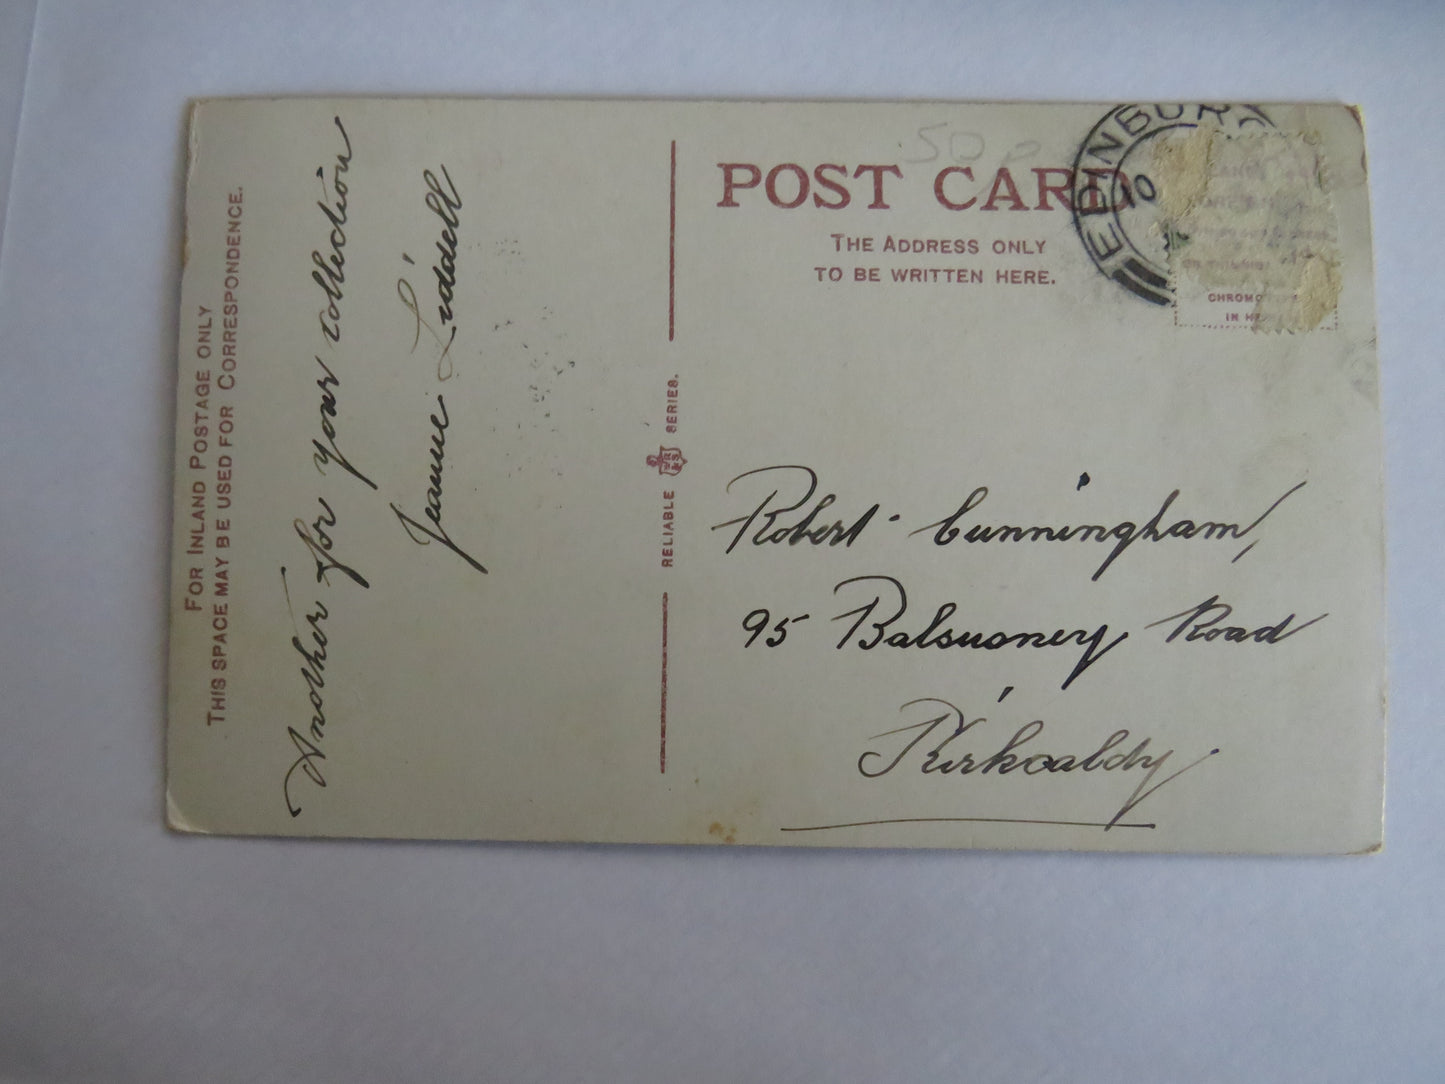 FOR INLAND POSTAGE ONLY
THIS SPACE MAY BE USED FOR CORRESPONDENCE.
Another for your collection
Jeanne Liddell
RELIABLE WR&S SERIES.
50p
POST CARD
THE ADDRESS ONLY
TO BE WRITTEN HERE.
EDINBUR
10
CHROMO
IN
Robert Cunningham,
95 Balsusney Road
Kirkcaldy